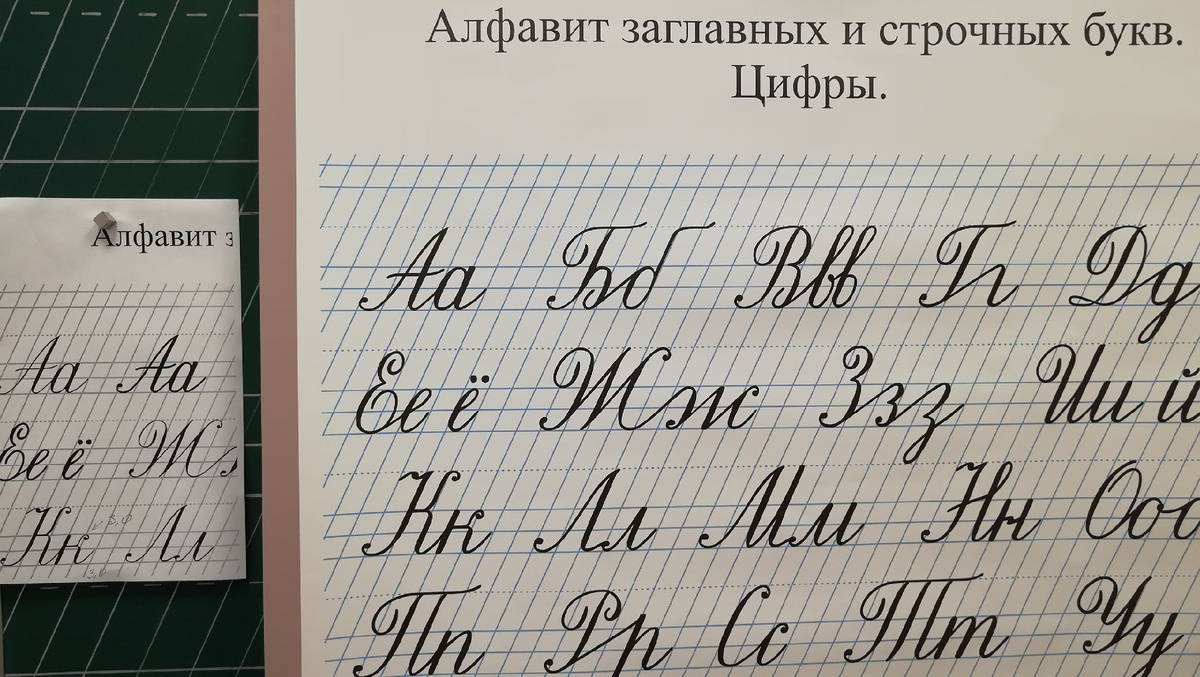 Алфавит заглавных и строчных букв.
Цифры.
Аа Бб Ввв Гг Дд
Ее ё Жж Ззз Ии й
Кк Лл Мм Нн Ооо
Пп Рр Сс Тт Уу
Алфавит з
Аа Аа
Ее ё Ж
Кк Лл